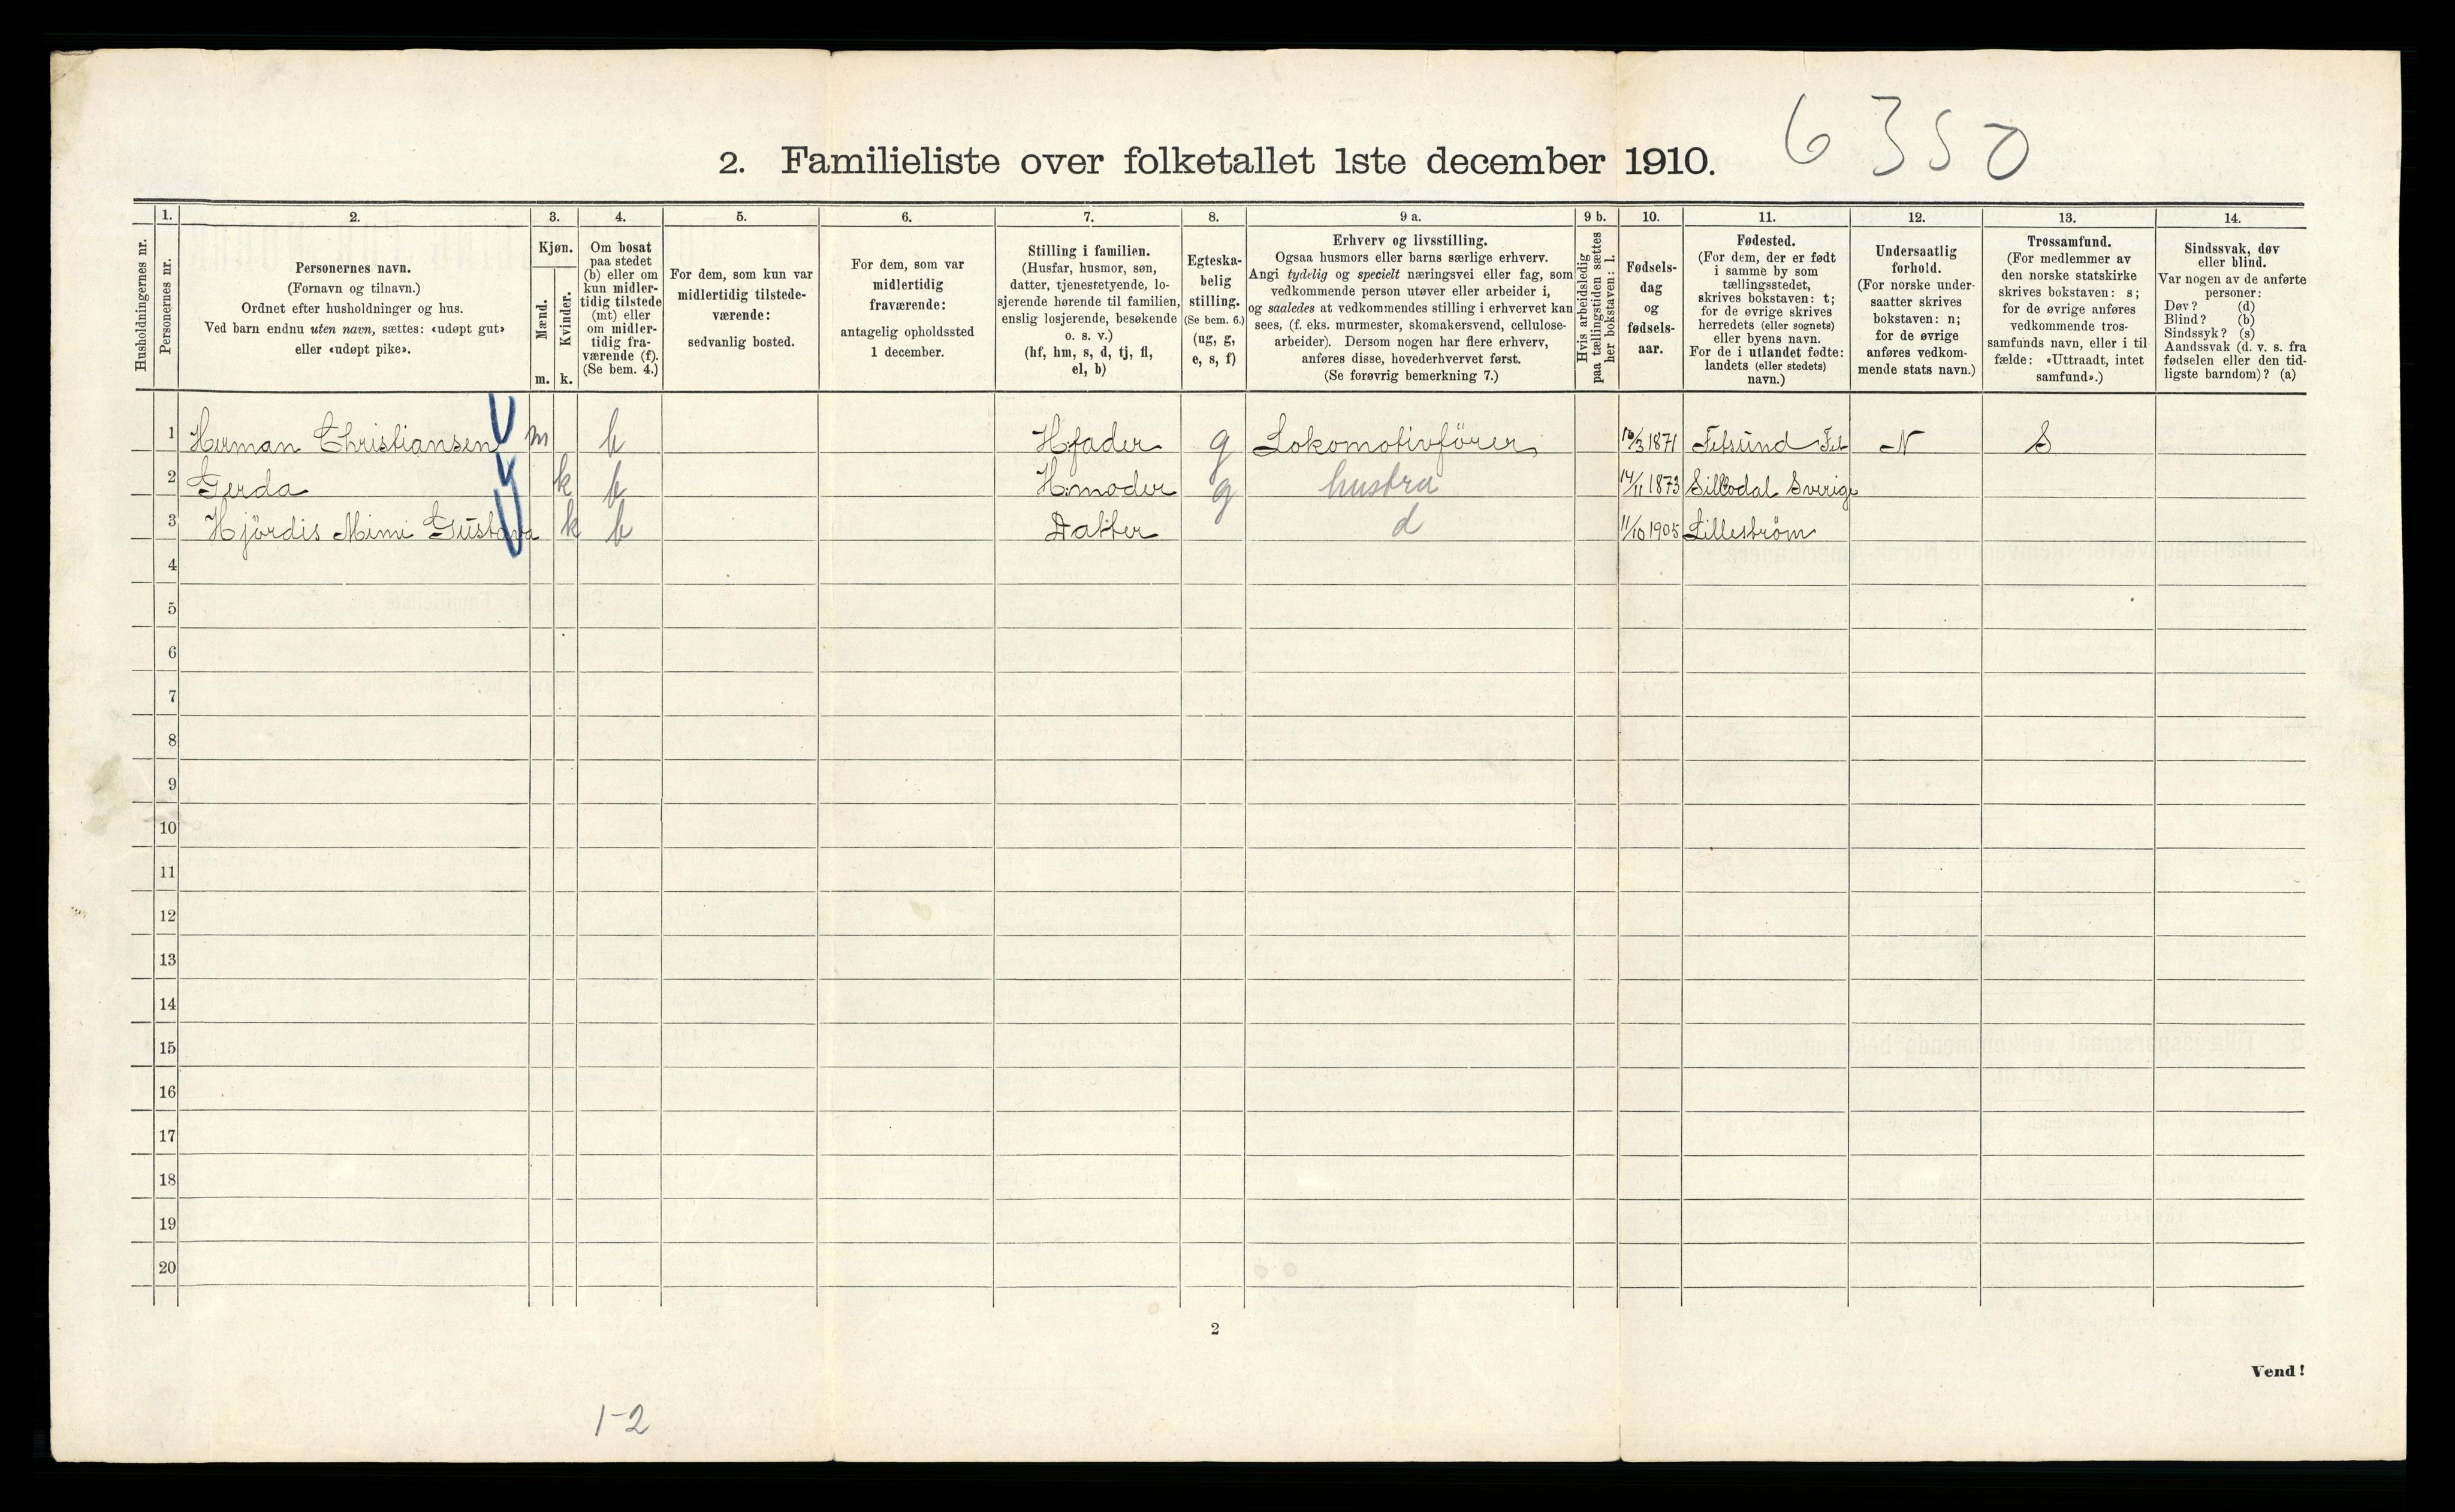 6350
2. Familieliste over folketallet 1ste december 1910.
Husholdningernes nr.
1.
Personernes nr.
2.
Personernes navn.
(Fornavn og tilnavn.)
Ordnet efter husholdninger og hus.
Ved barn endnu uten navn, sættes: «udøpt gut»
eller «udøpt pike».
3.
Kjøn.
Mænd.
m.
Kvinder.
k.
4.
Om bosat
paa stedet
(b) eller om
kun midler-
tidig tilstede
(mt) eller
om midler-
tidig fra-
værende (f).
(Se bem. 4.)
5.
For dem, som kun var
midlertidig tilstede-
værende:
sedvanlig bosted.
6.
For dem, som var
midlertidig
fraværende:
antagelig opholdssted
1 december.
7.
Stilling i familien.
(Husfar, husmor, søn,
datter, tjenestetyende, lo-
sjerende hørende til familien,
enslig losjerende, besøkende
o. s. v.)
(hf, hm, s, d, tj, fl,
el, b)
8.
Egteska-
belig
stilling.
(Se bem. 6.)
(ug, g,
e, s, f)
9 a.
Erhverv og livsstilling.
Ogsaa husmors eller barns særlige erhverv.
Angi tydelig og specielt næringsvei eller fag, som
vedkommende person utøver eller arbeider i,
og saaledes at vedkommendes stilling i erhvervet kan
sees, (f. eks. murmester, skomakersvend, cellulose-
arbeider). Dersom nogen har flere erhverv,
anføres disse, hovederhvervet først.
(Se forøvrig bemerkning 7.)
9 b.
Hvis arbeidsledig
paa tællingstiden sættes
her bokstaven: l.
10.
Fødsels-
dag
og
fødsels-
aar.
11.
Fødested.
(For dem, der er født
i samme by som
tællingsstedet,
skrives bokstaven: t;
for de øvrige skrives
herredets (eller sognets)
eller byens navn.
For de i utlandet fødte:
landets (eller stedets)
navn.)
12.
Undersaatlig
forhold.
(For norske under-
saatter skrives
bokstaven: n;
for de øvrige
anføres vedkom-
mende stats navn.)
13.
Trossamfund.
(For medlemmer av
den norske statskirke
skrives bokstaven: s;
for de øvrige anføres
vedkommende tros-
samfunds navn, eller i til
fælde: «Uttraadt, intet
samfund».)
14.
Sindssvak, døv
eller blind.
Var nogen av de anførte
personer:
Døv? (d)
Blind? (b)
Sindssyk? (s)
Aandssvak (d. v. s. fra
fødselen eller den tid-
ligste barndom)? (a)
1 Herman Christiansen m b H.fader g Lokomotivförer 1871 Fetsund Fet N S
2 Gerda k b H.moder g hustru 14/11 1873 Sverige
3 Hjördis Mimi Gustava k b Datter d 11/10 1905 Lilleström
4
5
6
7
8
9
10
11
12
13
14
15
16
17
18
19
20
2
Vend!
1-2